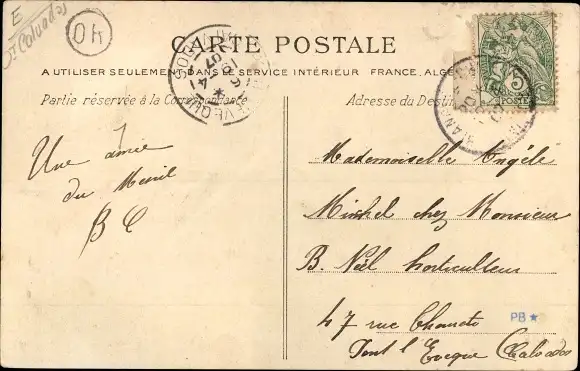 E
Calvados
40
CARTE POSTALE
A UTILISER SEULEMENT DANS LE SERVICE INTÉRIEUR FRANCE, ALGÉ
Partie réservée à la Correspondance
Adresse du Destin
07
POSTE
Une amie
du Mesnil
B C
Mademoiselle Angèle
Michel chez Monsieur
B. Noël horticulteur
47 rue
Pont l'Evêque Calvados
PB★